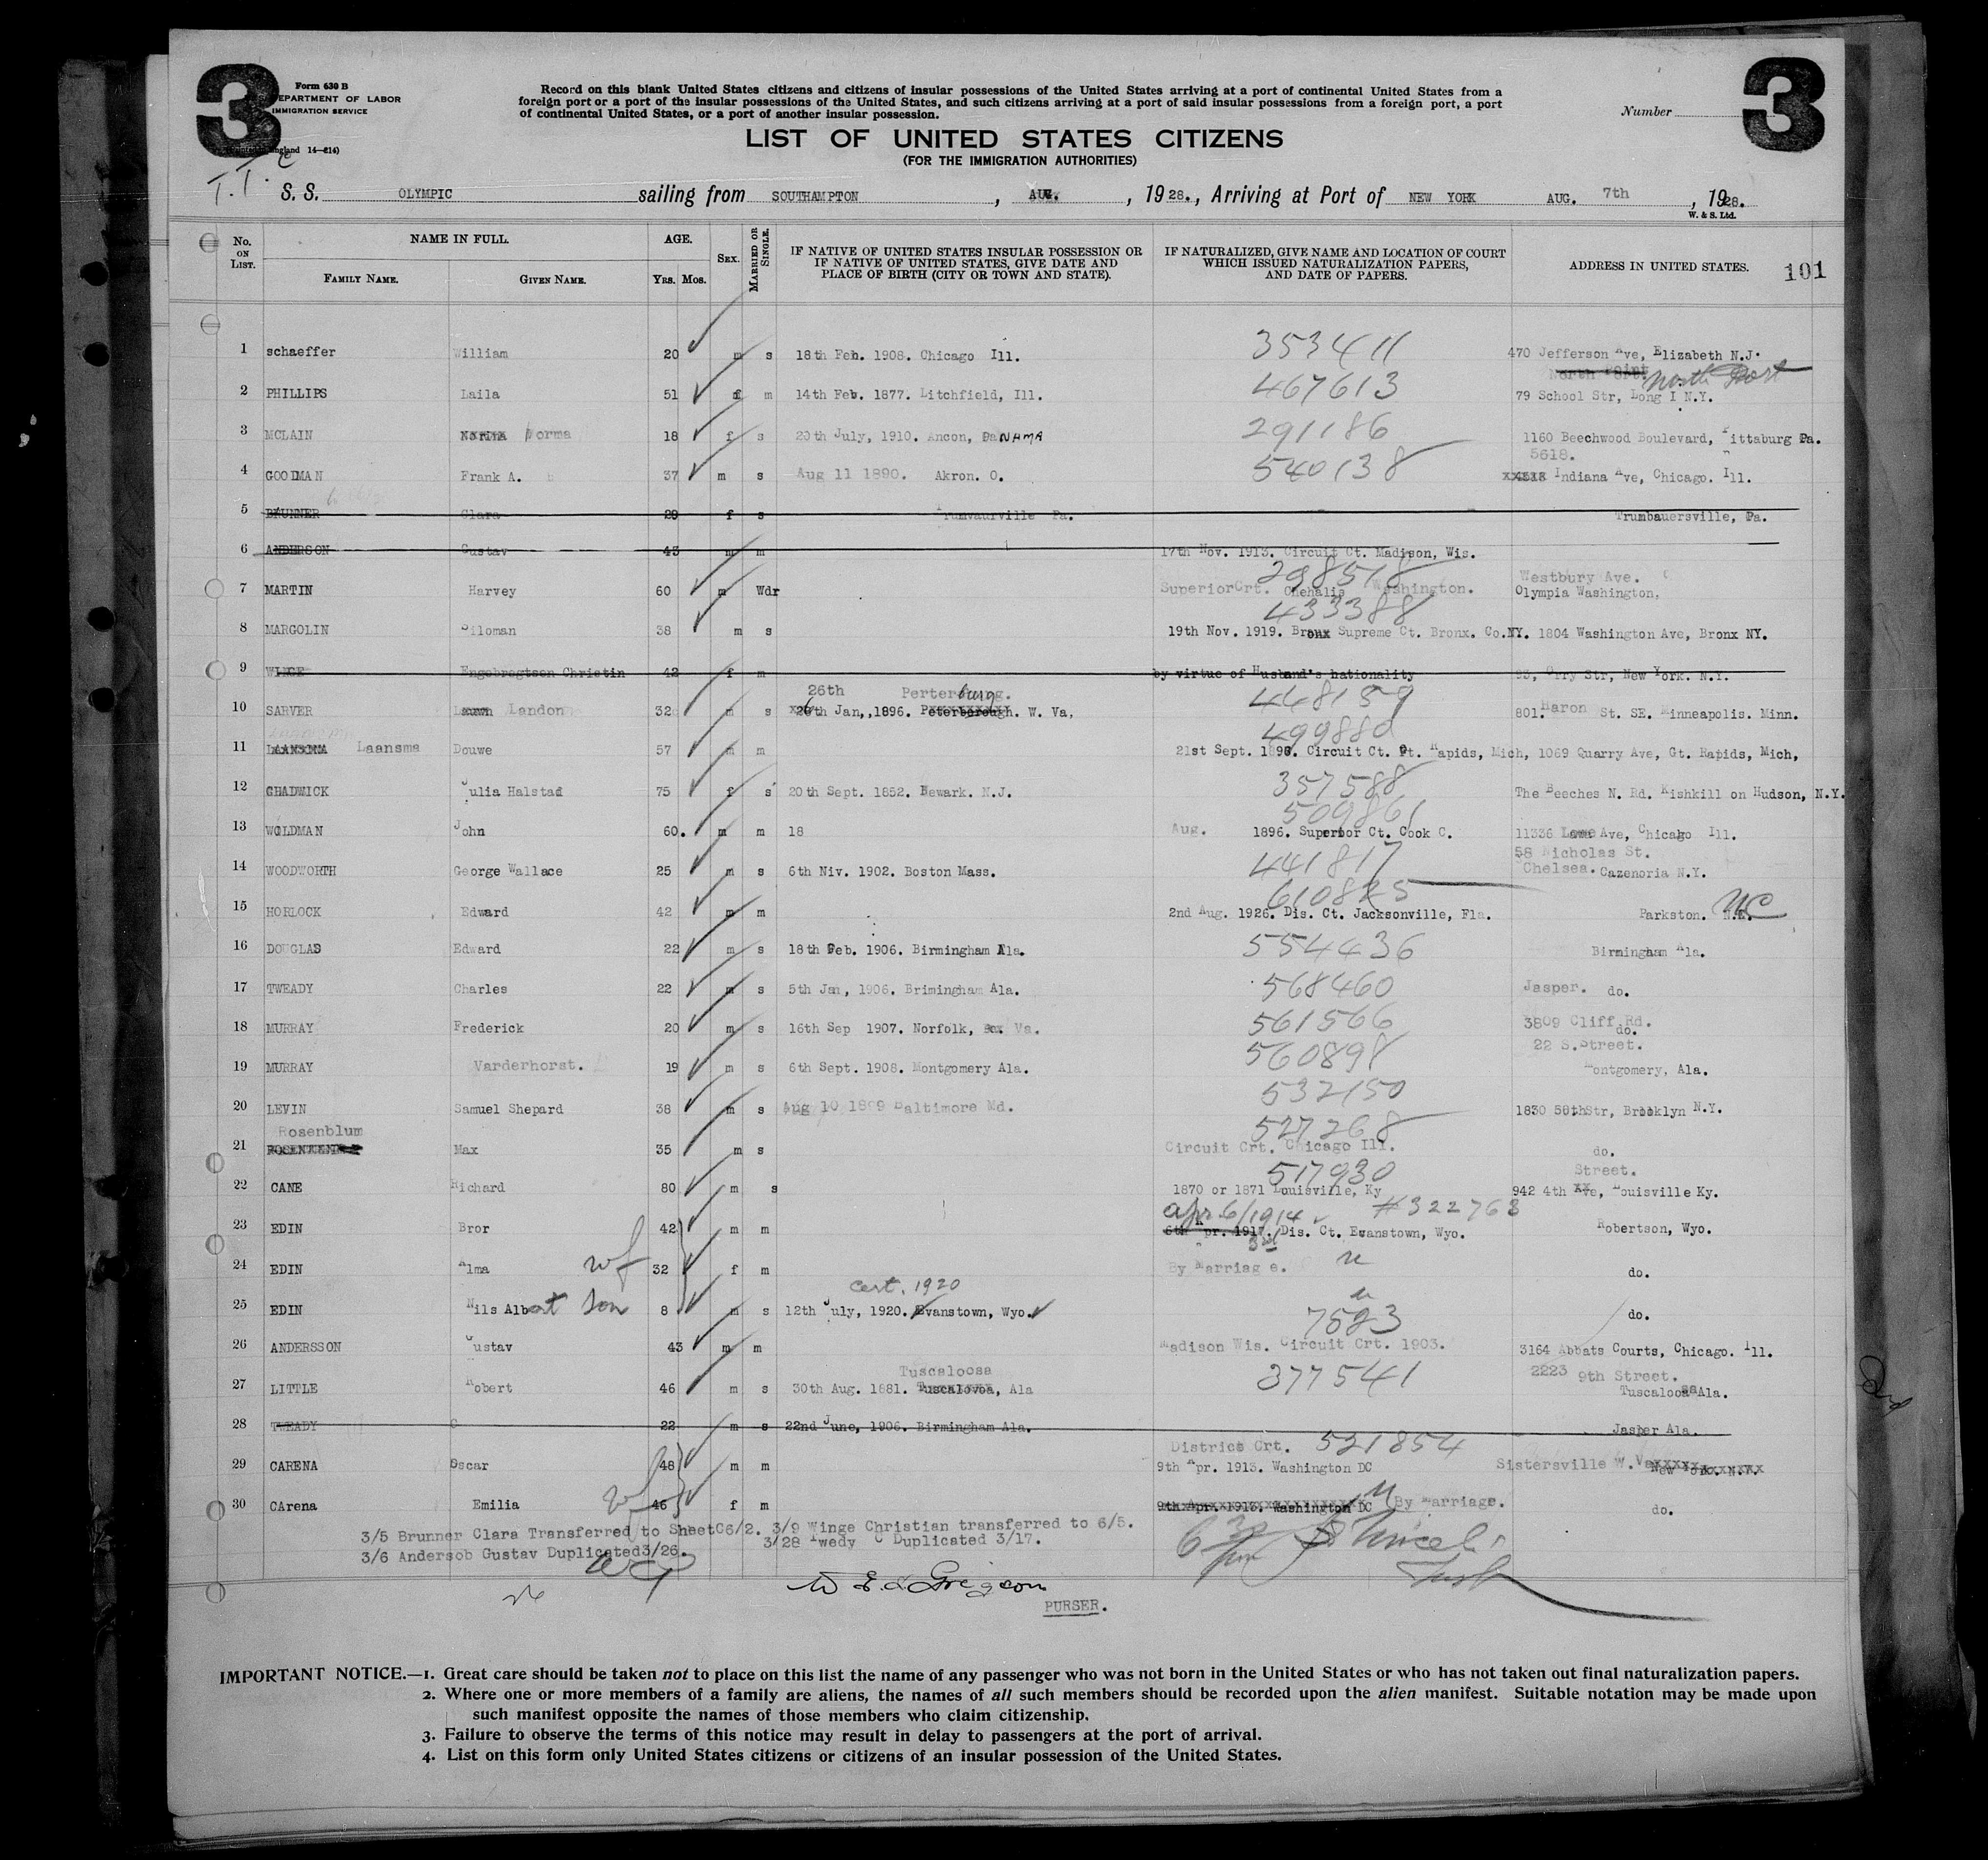 3
Form 630 B
DEPARTMENT OF LABOR
IMMIGRATION SERVICE
Record on this blank United States citizens and citizens of insular possessions of the United States arriving at a port of continental United States from a
foreign port or a port of the insular possessions of the United States, and such citizens arriving at a port of said insular possessions from a foreign port, a port
of continental United States, or a port of another insular possession.
Number
3
LIST OF UNITED STATES CITIZENS
(FOR THE IMMIGRATION AUTHORITIES)
S. S. OLYMPIC sailing from SOUTHAMPTON, AUG., 1928., Arriving at Port of NEW YORK AUG. 7th, 1928.
W. & S. Ltd.
No. ON LIST. NAME IN FULL. FAMILY NAME. GIVEN NAME. AGE. YRS. MOS. SEX. MARRIED OR SINGLE.
IF NATIVE OF UNITED STATES INSULAR POSSESSION OR
IF NATIVE OF UNITED STATES, GIVE DATE AND
PLACE OF BIRTH (CITY OR TOWN AND STATE).
IF NATURALIZED, GIVE NAME AND LOCATION OF COURT
WHICH ISSUED NATURALIZATION PAPERS,
AND DATE OF PAPERS.
ADDRESS IN UNITED STATES.
101
1 schaeffer William 20 m s 18th Feb. 1908. Chicago Ill. 353411 470 Jefferson Ave, Elizabeth N.J.
North Port
2 PHILLIPS Laila 51 f m 14th Feb. 1877. Litchfield, Ill. 467613 79 School Str, Long I N.Y.
3 MCLAIN Norma 18 f s 20th July, 1910. Ancon, PaNAMA 291186 1160 Beechwood Boulevard, Pittaburg Pa.
5618.
4 GOODMAN Frank A. 37 m s Aug 11 1890. Akron. O. 540138 Indiana Ave, Chicago. Ill.
5 BRUNNER Clara 29 f s Trumvaurville Pa. Trumbauersville, Pa.
6 ANDERSON Gustav 43 m m 17th Nov. 1913. Circuit Ct. Madison, Wis.
298518 Westbury Ave.
7 MARTIN Harvey 60 m Wdr SuperiorCrt. Chehalis Washington. Olympia Washington,
433388
8 MARGOLIN 38 m s 19th Nov. 1919. Bronx Supreme Ct. Bronx. Co.NY. 1804 Washington Ave, Bronx NY.
9 WINGE Engebregtson Christin 42 f m by virtue of Husband's nationality Str, New York. N.Y.
26th Perterburg. 448159
10 SARVER Landon 32 m s 26th Jan,,1896. Peterborough. W. Va, 801. Haron St. SE. Minneapolis. Minn.
11 Laansma Douwe 57 m m 21st Sept. 1896. Circuit Ct. Rapids, Mich, 1069 Quarry Ave, Gt. Rapids, Mich,
357588
12 CHADWICK Julia Halstad 75 f s 20th Sept. 1852. Newark. N.J. The Beeches N. Rd. Fishkill on Hudson, N.Y.
509861
13 WOLDMAN John 60. m m 18 Aug. 1896. Superior Ct. Cook C. 11336 Ave, Chicago Ill.
441817 58 Nicholas St.
14 WOODWORTH George Wallace 25 m s 6th Niv. 1902. Boston Mass. Chelsea. Cazenoria N.Y.
15 HORLOCK Edward 42 m m 2nd Aug. 1926. Dis. Ct. Jacksonville, Fla. Parkston. NC
16 DOUGLAS Edward 22 m s 18th Feb. 1906. Birmingham Ala. 554436 Birmingham Ala.
17 TWEADY Charles 22 m s 5th Jan, 1906. Brimingham Ala. 568460 Jasper. do.
18 MURRAY Frederick 20 m s 16th Sep 1907. Norfolk, Va. 561566 3809 Cliff Rd.
do.
22 S.Street.
19 MURRAY Varderhorst. 19 m s 6th Sept. 1908. Montgomery Ala. 560898 Montgomery, Ala.
532150
20 LEVIN Samuel Shepard 38 m s Aug 10 1889 Baltimore Md. 1830 58thStr, Brooklyn N.Y.
Rosenblum 527268
21 Max 35 m s Circuit Crt. Chicago Ill. do.
517930 Street.
22 CANE Richard 80 m s 1870 or 1871 Louisville, Ky 942 4th Ave, Louisville Ky.
apr. 6/1914 #322763
23 EDIN Bror 42 m m 6th Apr. 1917. Dis. Ct. Evanstown, Wyo. Robertson, Wyo.
24 EDIN Alma wf 32 f m By Marriage. " do.
cert. 1920
25 EDIN Nils Albert son 8 m s 12th July, 1920. Evanstown, Wyo. " do.
7523
26 ANDERSSON Gustav 43 m m Madison Wis. Circuit Crt. 1903. 3164 Abbats Courts, Chicago. Ill.
Tuscaloosa 2223 9th Street.
27 LITTLE Robert 46 m s 30th Aug. 1881. Tuscalovoa, Ala 377541 TuscaloosaAla.
28 TWEADY C 22 m s 22nd June, 1906. Birmingham Ala. Jasper Ala.
District Crt. 521854
29 CARENA Oscar 48 m m 9th Apr. 1913. Washington DC Sistersville W.Va New York. N.Y.
30 CArena Emilia wf 46 f m 9th Apr. 1913. Washington DC By Marriage. do.
3/5 Brunner Clara Transferred to SheetC6/2. 3/9 Winge Christian transferred to 6/5.
3/6 Andersob Gustav Duplicated3/26. 3/28 Twedy C Duplicated 3/17.
PURSER.
IMPORTANT NOTICE.—1. Great care should be taken not to place on this list the name of any passenger who was not born in the United States or who has not taken out final naturalization papers.
2. Where one or more members of a family are aliens, the names of all such members should be recorded upon the alien manifest. Suitable notation may be made upon
such manifest opposite the names of those members who claim citizenship.
3. Failure to observe the terms of this notice may result in delay to passengers at the port of arrival.
4. List on this form only United States citizens or citizens of an insular possession of the United States.